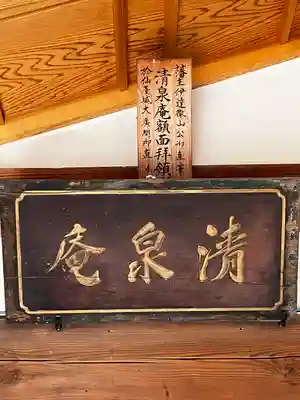 藩主伊達徹山公御直筆
清泉庵額面拝領
於仙台城大広間御直
清泉庵